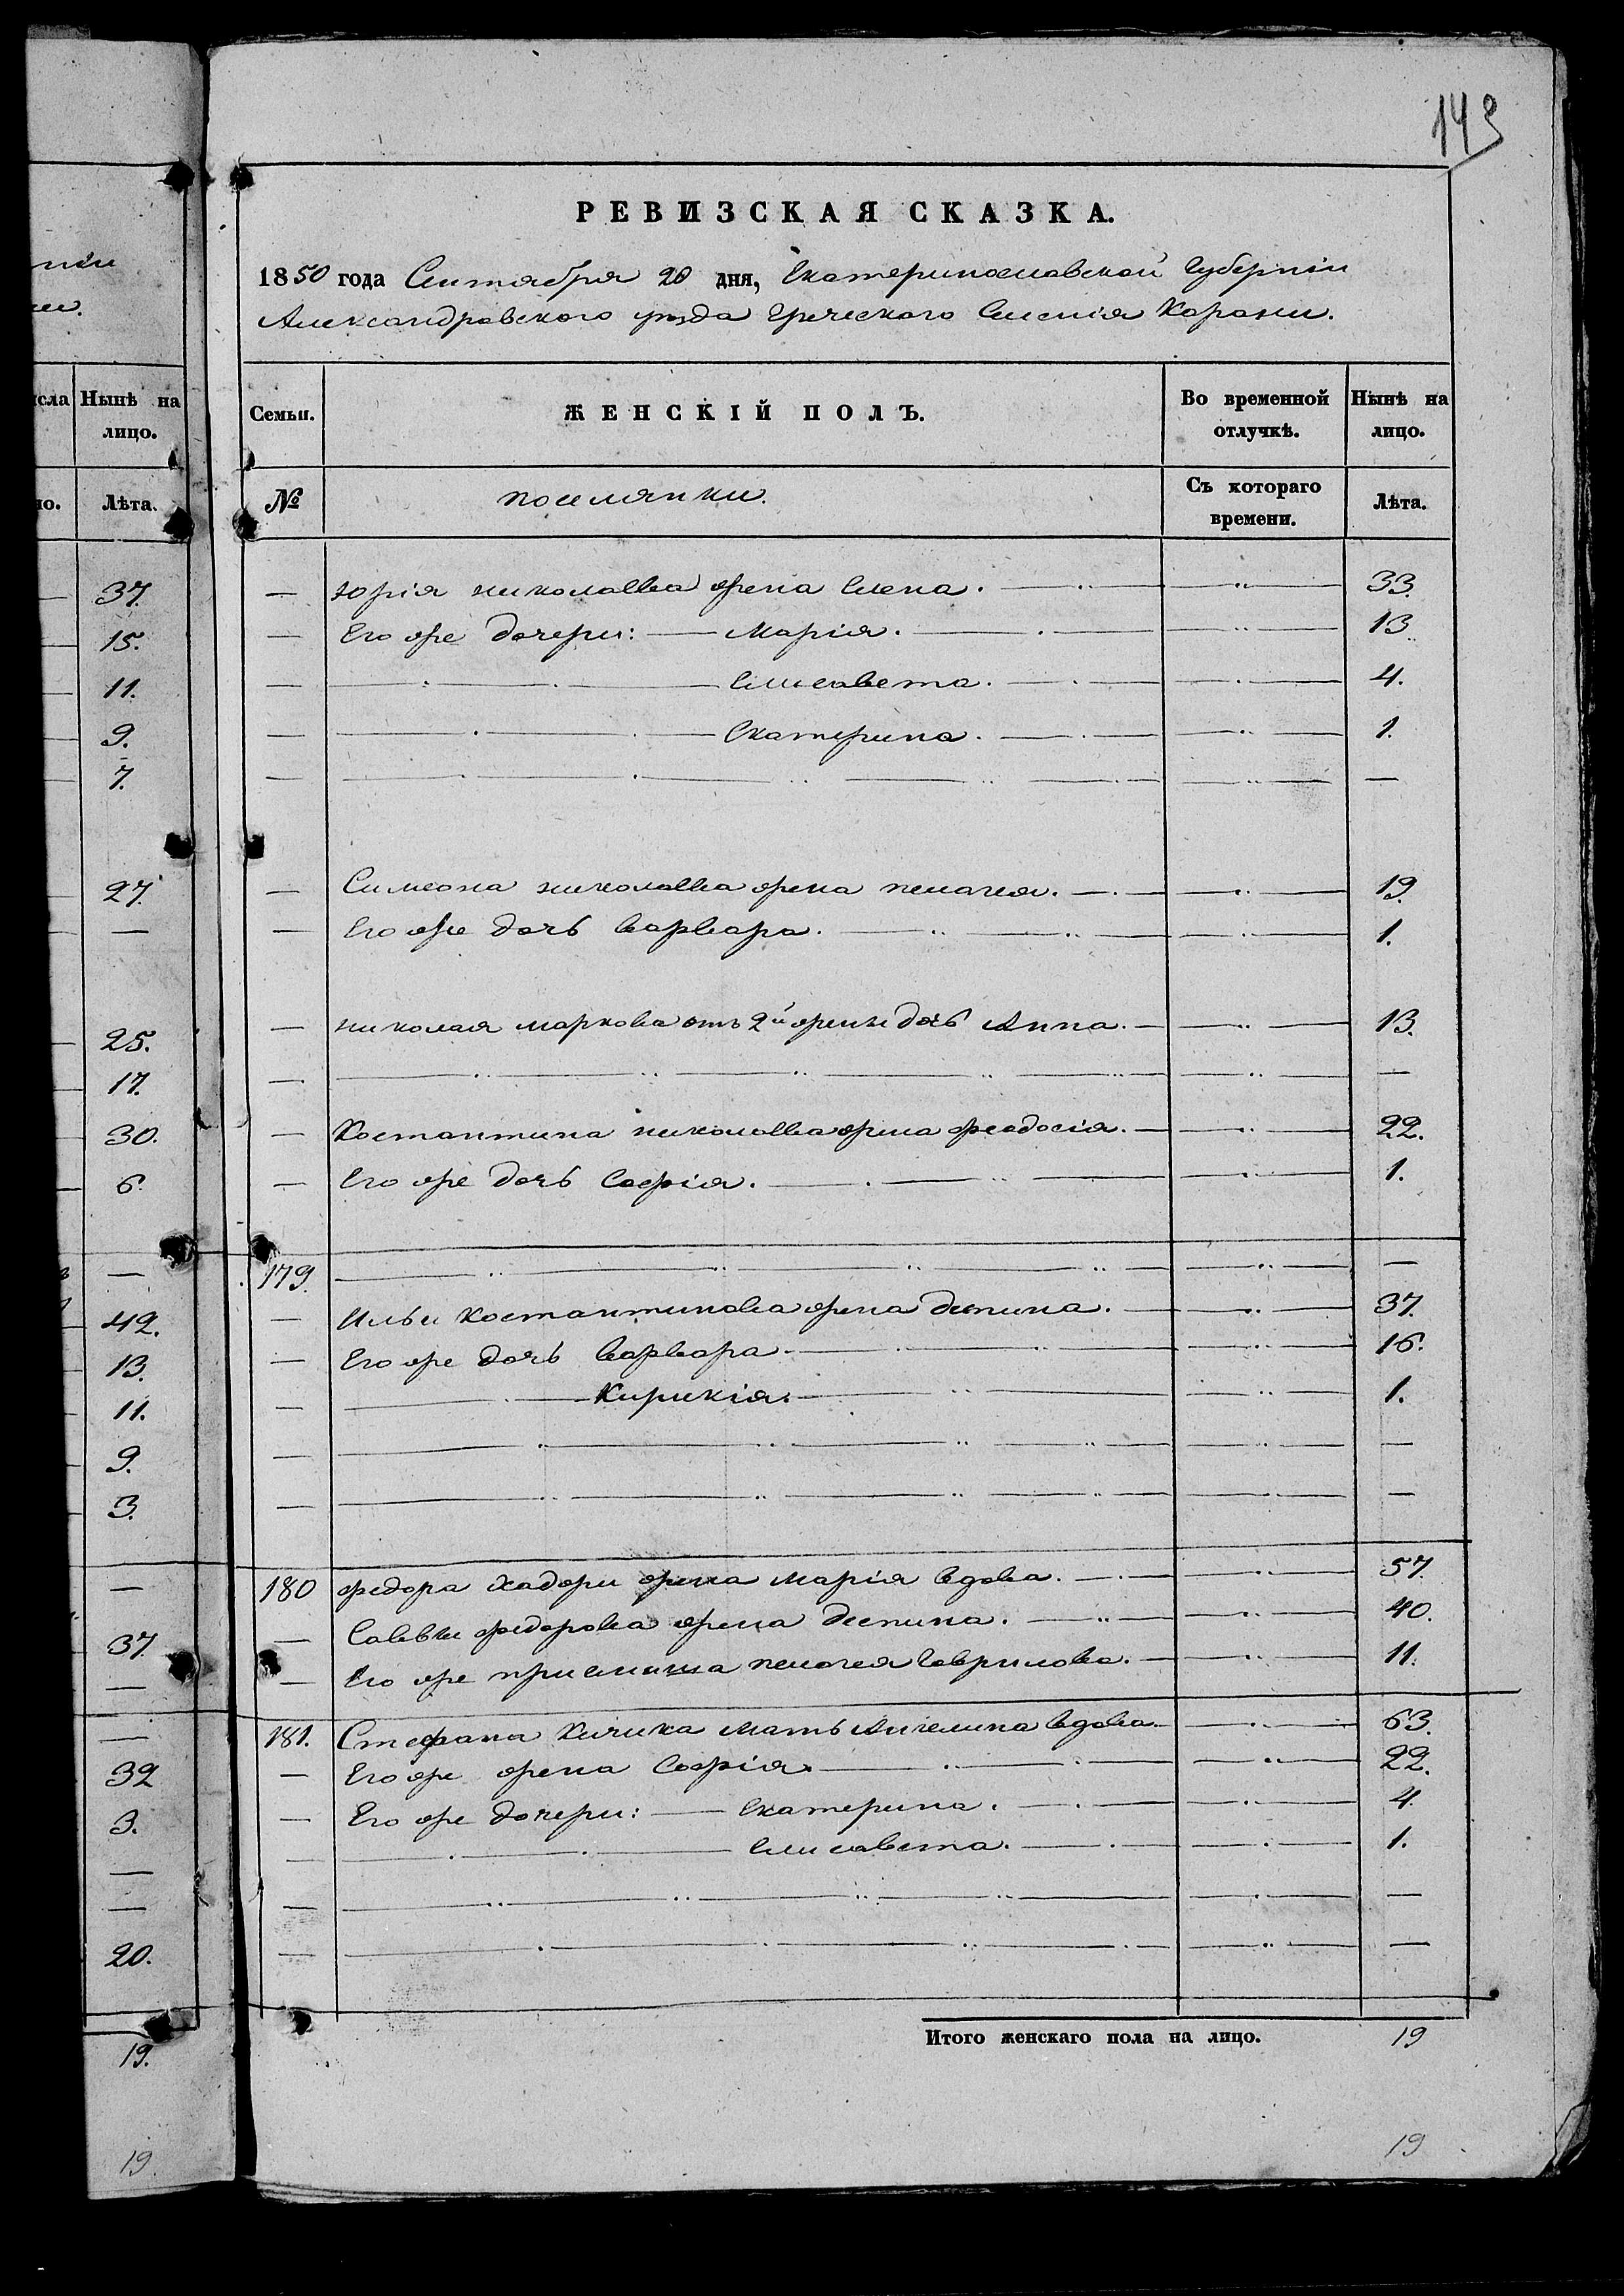 149
РЕВИЗСКАЯ СКАЗКА.
1850 года Сентября 20 дня, Екатеринославской Губерніи
Александровского уезда Греческого Селенія Карани.
нiи
ни.
сла Нынѣ на лицо.
но. Лѣта.
37.
15.
11.
9.
7.
27.
—
25.
17.
30.
6.
—
42.
13.
11.
9.
3.
—
37.
—
—
32
3.
—
—
20.
19.
19.
Семьи. ЖЕНСКІЙ ПОЛЪ. Во временной отлучкѣ. Нынѣ на лицо.
№ поселянки. Съ котораго времени. Лѣта.
— Юрія николаева жена Елена. — 33.
— Его же дочери: — Марія. — 13
— Елисавета. — 4.
— Екатерина. — 1.
— — —
— Симеона николаева жена пелагея. — 19.
— Его же дочь варвара. — 1.
— николая маркова отъ 2й жены дочь Анна. — 13.
— — —
— Костантина николаева жена феодосія. — 22.
— Его же дочь Софія. — 1.
179. — —
— Ильи Костантинова жена деспина. — 37.
— Его же дочь варвара. — 16.
— Кирикія. — 1.
— — —
— — —
180 федора хаджи жена марія вдова. — 57.
— Саввы федорова жена деспина. — 40.
— Его же приемыша пелагея Гаврилова. — 11.
181. Стефана Кичика мать Ангелина вдова. — 63.
— Его же жена Софія. — 22.
— Его же дочери: — Екатерина. — 4.
— Елисавета. — 1.
— — —
— — —
Итого женскаго пола на лицо. 19
19